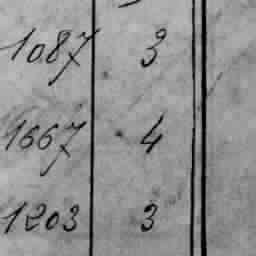 1087 3
1667 4
1203 3